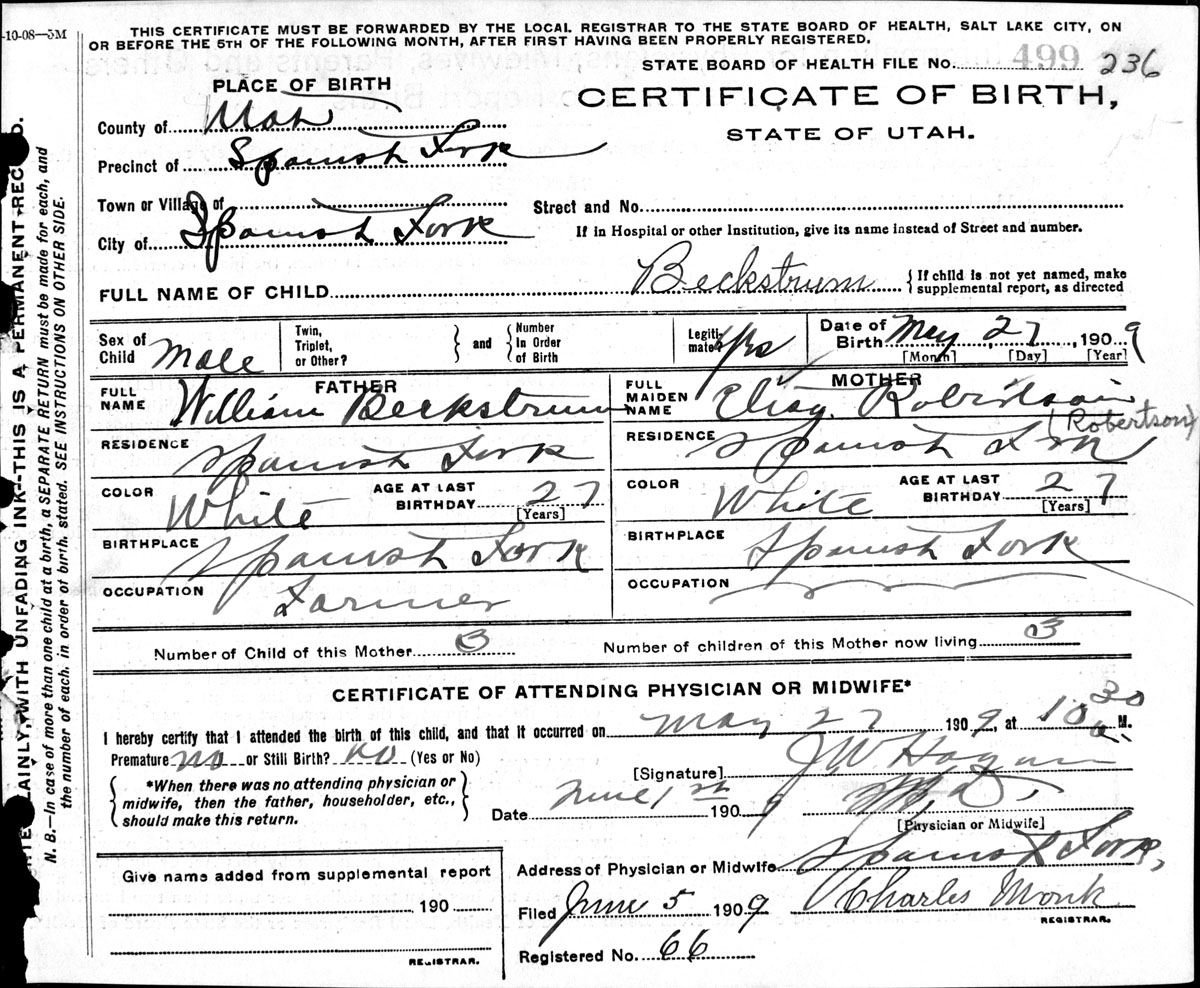 -10-08—5M
THIS CERTIFICATE MUST BE FORWARDED BY THE LOCAL REGISTRAR TO THE STATE BOARD OF HEALTH, SALT LAKE CITY, ON
OR BEFORE THE 5TH OF THE FOLLOWING MONTH, AFTER FIRST HAVING BEEN PROPERLY REGISTERED.
STATE BOARD OF HEALTH FILE NO. 499 236
PLACE OF BIRTH
CERTIFICATE OF BIRTH,
STATE OF UTAH.
County of Utah
Precinct of Spanish Fork
Town or Village of
Street and No.
City of Spanish Fork
If in Hospital or other Institution, give its name instead of Street and number.
FULL NAME OF CHILD Beckstrum { If child is not yet named, make supplemental report, as directed
Sex of Child Male
Twin, Triplet, or Other? } and { Number In Order of Birth
Legiti- mate? yes
Date of Birth May 27, 1909
[Month] [Day] [Year]
FATHER
FULL NAME William Beckstrum
RESIDENCE Spanish Fork
COLOR White AGE AT LAST BIRTHDAY 27 [Years]
BIRTHPLACE Spanish Fork
OCCUPATION Farmer
MOTHER
FULL MAIDEN NAME Robertson
(Robertson)
RESIDENCE Spanish Fork
COLOR White AGE AT LAST BIRTHDAY 27 [Years]
BIRTHPLACE Spanish Fork
OCCUPATION
Number of Child of this Mother 3 Number of children of this Mother now living 3
CERTIFICATE OF ATTENDING PHYSICIAN OR MIDWIFE*
I hereby certify that I attended the birth of this child, and that it occurred on May 27 1909, at 10 30 a M.
Premature no or Still Birth? no (Yes or No)
[Signature] J W Hagan
{ *When there was no attending physician or midwife, then the father, householder, etc., should make this return. }
Date June 1st 1909 M.D.
[Physician or Midwife]
Address of Physician or Midwife Spanish Fork,
Give name added from supplemental report
190
REGISTRAR.
Filed June 5 1909 Charles Monk
REGISTRAR.
Registered No. 66
AINLY, WITH UNFADING INK--THIS IS A PERMANENT REC D.
N. B.—In case of more than one child at a birth, a SEPARATE RETURN must be made for each, and
the number of each. in order of birth. stated. SEE INSTRUCTIONS ON OTHER SIDE.